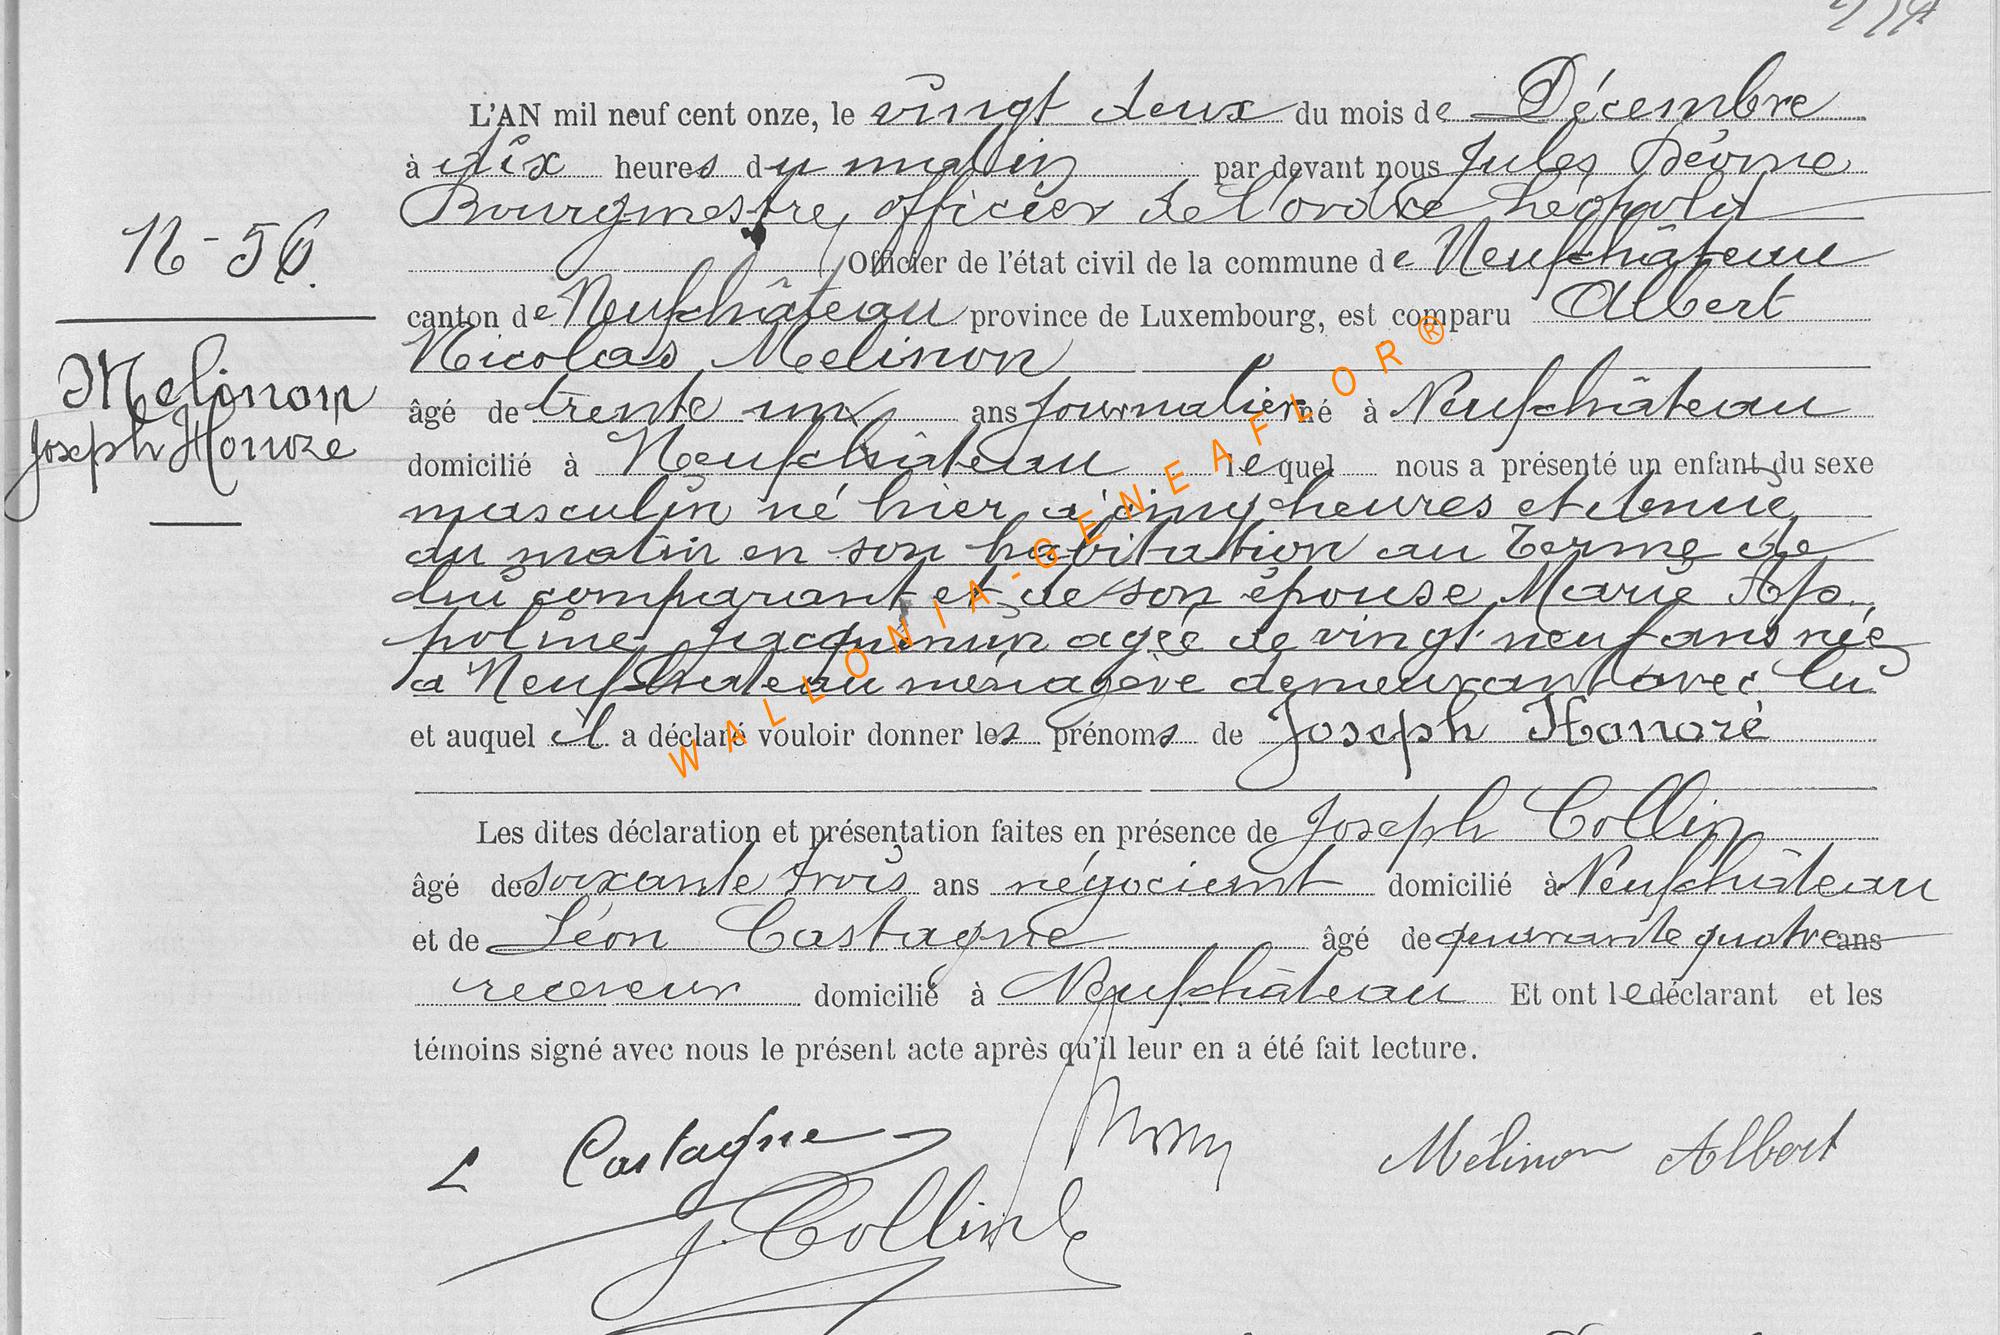 L'AN mil neuf cent onze, le vingt deux du mois de Décembre
à dix heures du matin par devant nous Jules
Bourgmestre, officier de l'ordre Léopold
Officier de l'état civil de la commune de Neufchâteau
N-56.
canton de Neufchâteau province de Luxembourg, est comparu Albert
Nicolas Melinon
Melinon
Joseph Honoré
âgé de trente un ans journalier né à Neufchâteau
domicilié à Neufchâteau lequel nous a présenté un enfant du sexe
masculin né hier à cinq heures et demie
du matin en son habitation au Terme de
lui comparant et de son épouse Marie Ap-
poline Jacquemin agée de vingt-neuf ans née
à Neufchateau ménagère demeurant avec lui
et auquel il a déclaré vouloir donner les prénoms de Joseph Honoré
Les dites déclaration et présentation faites en présence de Joseph Collin
âgé de soixante trois ans négociant domicilié à Neufchâteau
et de Léon Castagne âgé de quarante quatre ans
receveur domicilié à Neufchâteau Et ont le déclarant et les
témoins signé avec nous le présent acte après qu'il leur en a été fait lecture.
L Castagne Mélinon Albert
J. Collin
WALLONIA-GENEAFLOR®